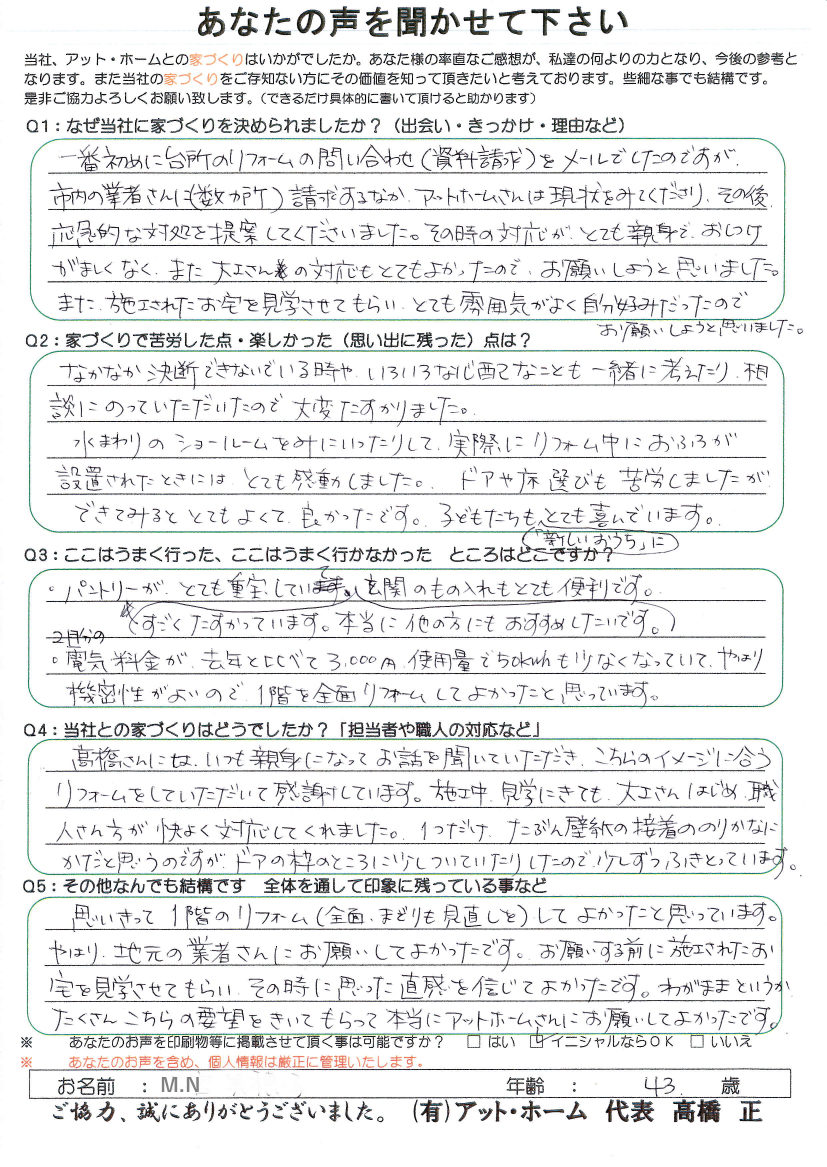 あなたの声を聞かせて下さい
当社、アット・ホームとの家づくりはいかがでしたか。あなた様の率直なご感想が、私達の何よりの力となり、今後の参考と
なります。また当社の家づくりをご存知ない方にその価値を知って頂きたいと考えております。些細な事でも結構です。
是非ご協力よろしくお願い致します。（できるだけ具体的に書いて頂けると助かります）
Q1：なぜ当社に家づくりを決められましたか？（出会い・きっかけ・理由など）
一番初めに台所のリフォームの問い合わせ（資料請求）をメールでしたのですが、
市内の業者さんに（数か所）請求するなか、アットホームさんは現状をみてくださり、その後、
応急的な対処を提案してくださいました。その時の対応が、とても親身で、おしつけ
がましくなく、また大工さんの対応もとてもよかったので、お願いしようと思いました。
また、施工されたお宅を見学させてもらい、とても雰囲気がよく自分好みだったので
お願いしようと思いました。
Q2：家づくりで苦労した点・楽しかった（思い出に残った）点は？
なかなか決断できないでいる時や、いろいろな心配なことも一緒に考えたり、相
談にのっていただいたので大変たすかりました。
水まわりのショールームをみにいったりして、実際にリフォーム中におふろが
設置されたときには、とても感動しました。ドアや床選びも苦労しましたが
できてみるととてもよくて、良かったです。子どもたちも、とても喜んでいます。
「新しいおうち」に
Q3：ここはうまく行った、ここはうまく行かなかった　ところはどこですか？
。パントリーが、とても重宝しています。玄関のもの入れもとても便利です。
（すごくたすかっています。本当に他の方にもおすすめしたいです。）
2月分の
。電気料金が、去年とくらべて3,000円、使用量で50kwhも少なくなっていて、やはり
機密性がよいので、1階を全面リフォームしてよかったと思っています。
Q4：当社との家づくりはどうでしたか？「担当者や職人の対応など」
高橋さんには、いつも親身になってお話を聞いていただき、こちらのイメージに合う
リフォームをしていただいて感謝しています。施工中、見学にきても、大工さんはじめ、職
人さん方が快よく対応してくれました。1つだけ、たぶん壁紙の接着ののりかなに
かだと思うのですが、ドアの枠のところに少しついていたりしたので、少しずつふきとっています。
Q5：その他なんでも結構です　全体を通して印象に残っている事など
思いきって1階のリフォーム（全面、まどりも見直しを）してよかったと思っています。
やはり、地元の業者さんにお願いしてよかったです。お願いする前に施工されたお
宅を見学させてもらい、その時に思った直感を信じてよかったです。わがままというか
たくさんこちらの要望をきいてもらって本当にアットホームさんにお願いしてよかったです。
※　あなたのお声を印刷物等に掲載させて頂く事は可能ですか？　□はい　☑イニシャルならOK　□いいえ
※　あなたのお声を含め、個人情報は厳正に管理いたします。
お名前　：M.N　年齢　：　43　歳
ご協力、誠にありがとうございました。（有）アット・ホーム　代表　高橋　正